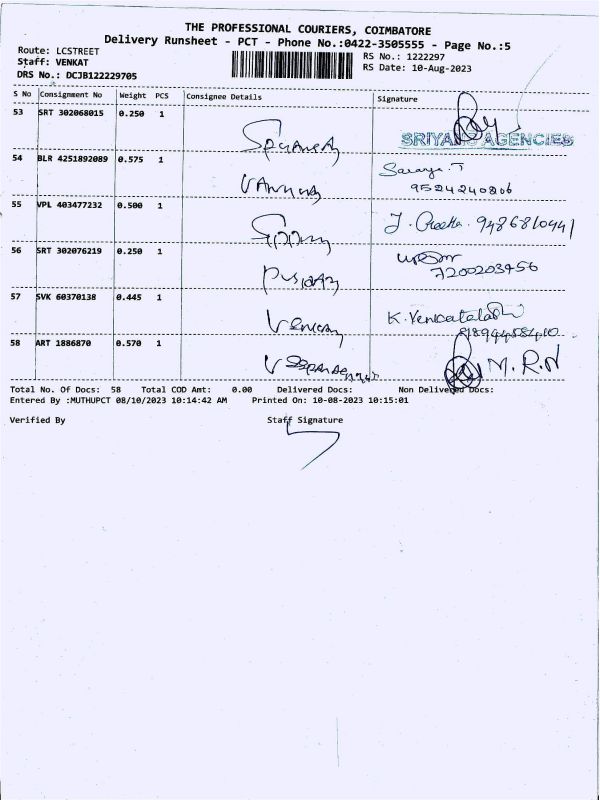 THE PROFESSIONAL COURIERS, COIMBATORE
Delivery Runsheet - PCT - Phone No.:0422-3505555 - Page No.:5
Route: LCSTREET
RS No.: 1222297
Staff: VENKAT
RS Date: 10-Aug-2023
DRS No.: DCJB122229705
S No Consignment No Weight PCS Consignee Details Signature
53 SRT 302068015 0.250 1
SRIYANS AGENCIES
54 BLR 4251892089 0.575 1 Saranya. T
9524240806
55 VPL 403477232 0.500 1 J. Preetha. 9486810941
56 SRT 302076219 0.250 1
7200203456
57 SVK 60370138 0.445 1 K. Venkatalakshmi
58 ART 1886870 0.570 1 M.R.N
Total No. Of Docs: 58 Total COD Amt: 0.00 Delivered Docs: Non Delivered Docs:
Entered By :MUTHUPCT 08/10/2023 10:14:42 AM Printed On: 10-08-2023 10:15:01
Verified By Staff Signature